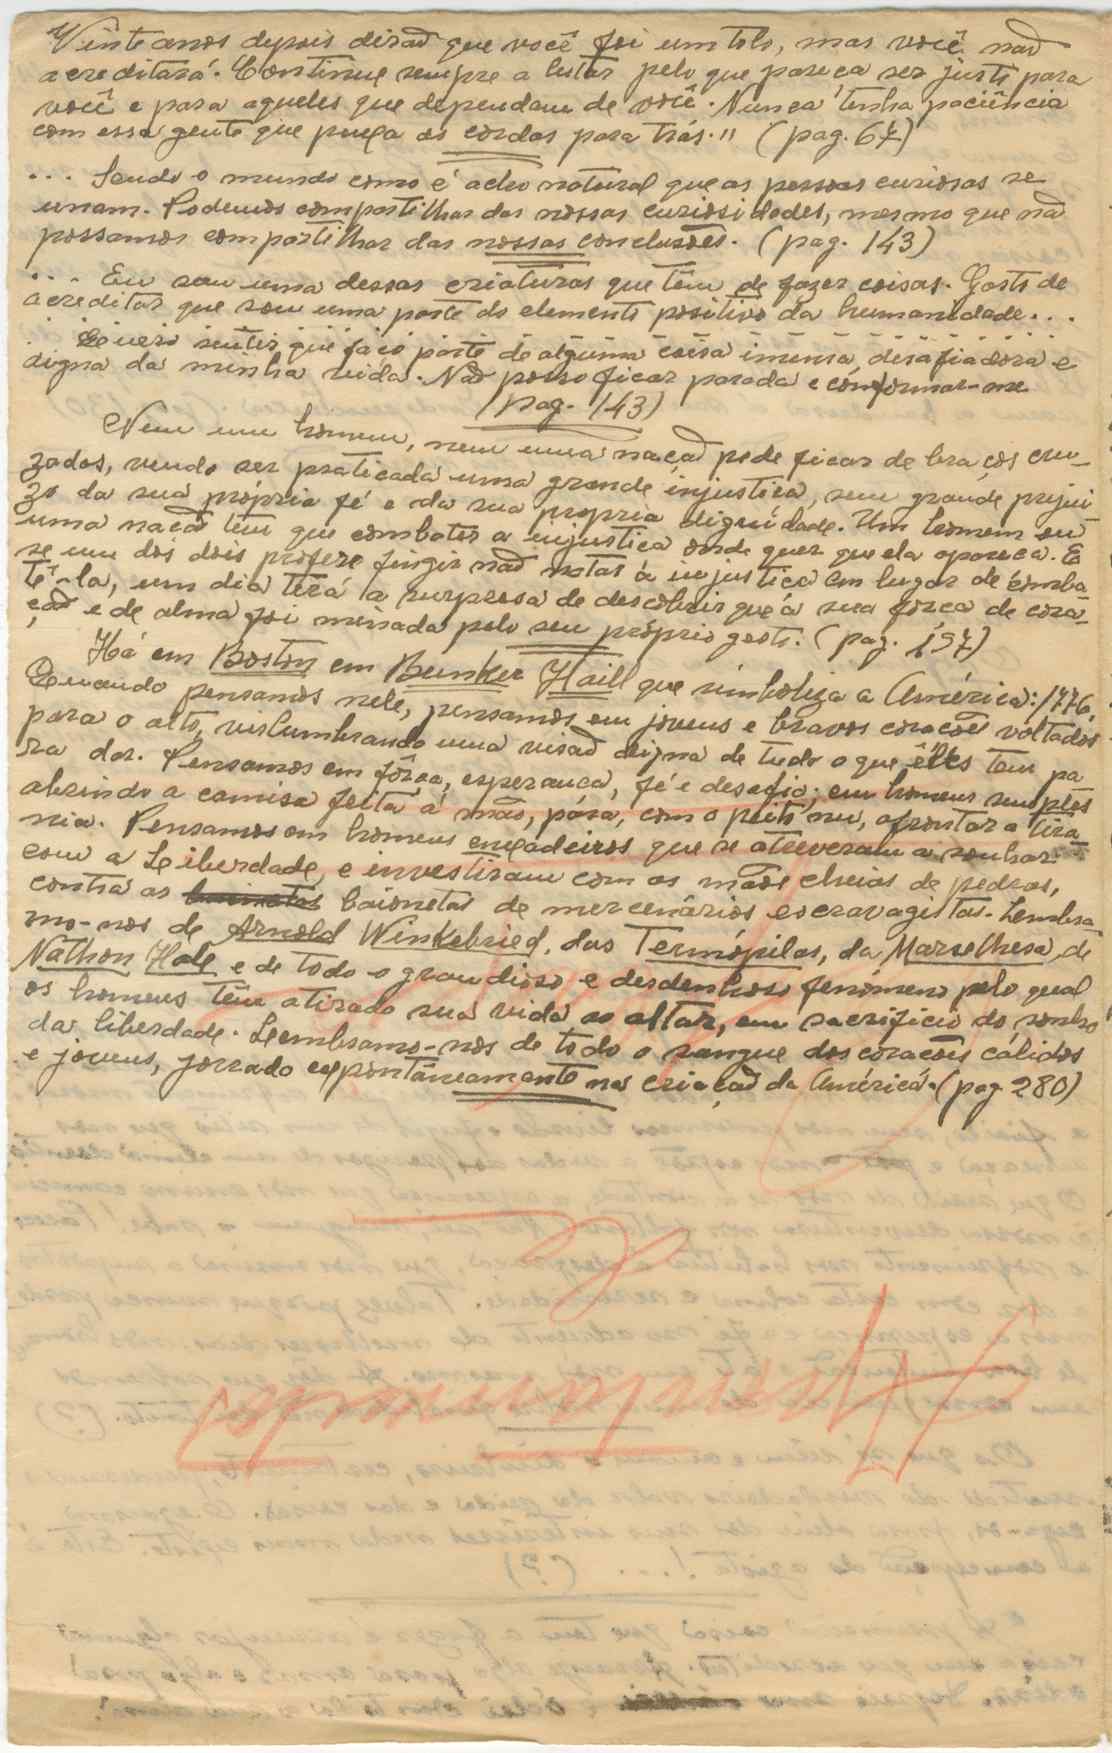 Vinte anos depois dirão que você foi um tolo, mas você não
acreditará. Continue sempre a lutar pelo que pareça ser justo para
você e para aqueles que dependam de você. Nunca tenha paciência
com essa gente que puxa as cordas para trás." (pag. 67)
... Sendo o mundo como é acho natural que as pessoas curiosas se
unam. Podemos compartilhar das nossas curiosidades, mesmo que não
possamos compartilhar das nossas conclusões. (pag. 143)
... Eu sou uma dessas criaturas que têm de fazer coisas. Gosto de
acreditar que sou uma parte do elemento positivo da humanidade...
Quero sentir que faço parte de alguma coisa imensa, desafiadora e
digna da minha vida. Não posso ficar parada e conformar-me
(pag. 143)
Nem um homem, nem uma nação pode ficar de braços cru-
zados, vendo ser praticada uma grande injustiça, sem grande prejui-
zo da sua própria fé e da sua propria dignidade. Um homem ou
uma nação tem que combater a injustiça onde quer que ela apareça. E
se um dos dois prefere fingir não notar a injustiça em lugar de comba-
tê-la, um dia terá a surpresa de descobrir que a sua força de cora-
ção e de alma foi minada pelo seu próprio gesto. (pag. 197)
Há em Boston em Bunker Haill que simboliza a América: 1776.
Quando pensamos nele, pensamos em jovens e bravos corações voltados
para o alto, vislumbrando uma visão digna de tudo o que êles tem pa
ra dar. Pensamos em fôrça, esperança, fé e desafio; em homens simples
abrindo a camisa feita á mão, para, com o peito nu, afrontar a tira
nia. Pensamos em homens enxadeiros que se atreveram a sonhar
com a Leiberdade, e investiram com as mãos cheias de pedras,
contra as baionetas de mercenários escravagistas. Lembra
mo-nos de Arnold Winkebried, das Termópilas, da Marselhesa, de
Nathon Hale e de todo o grandioso e desdenhoso fenómeno pelo qual
os homens têm atirado sua vida ao altar, em sacrificio do sonho
da liberdade. Leembramo-nos de todo o sangue dos corações cálidos
e jovens, jorrado expontâneamente na criação da América. (pag 280)